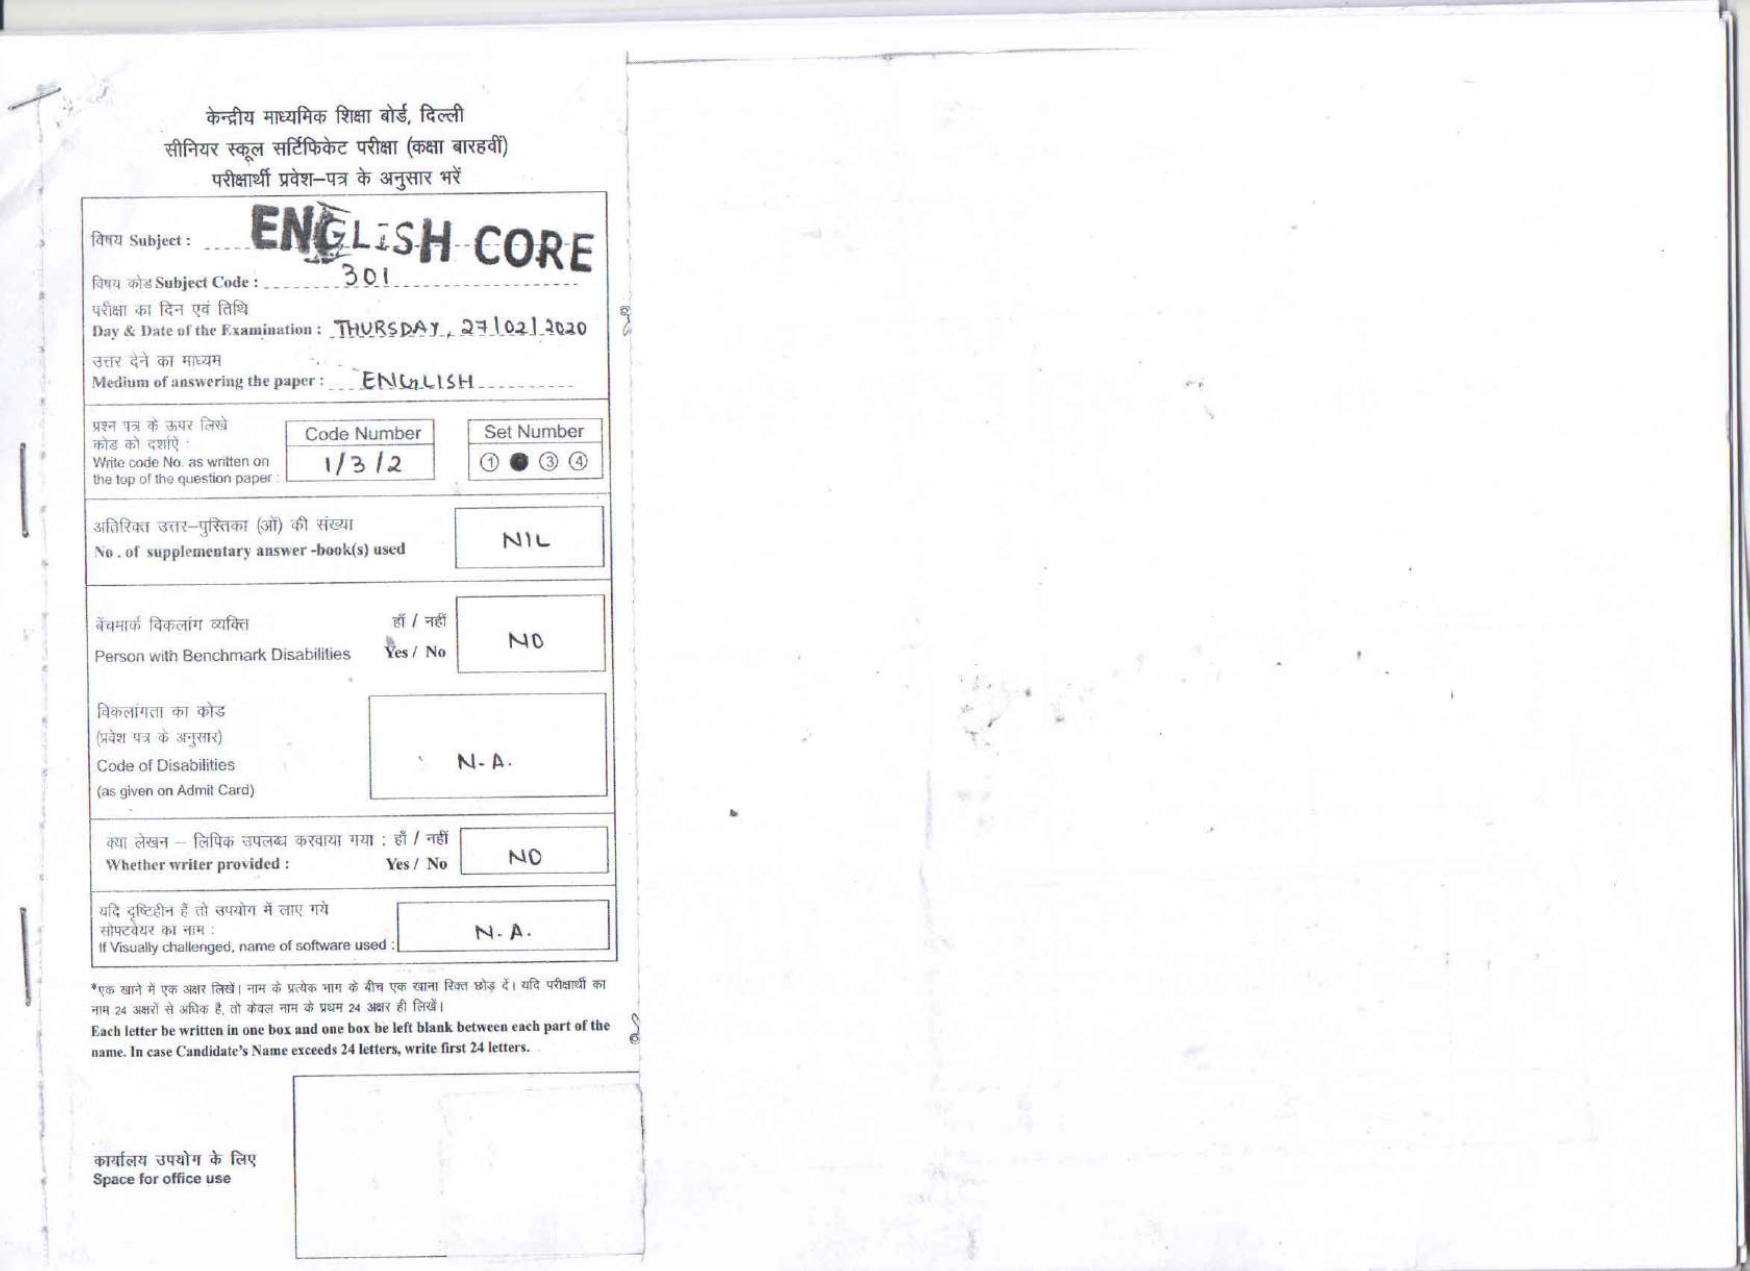 केन्द्रीय माध्यमिक शिक्षा बोर्ड, दिल्ली
सीनियर स्कूल सर्टिफिकेट परीक्षा (कक्षा बारहवीं)
परीक्षार्थी प्रवेश–पत्र के अनुसार भरें
विषय Subject : ENGLISH CORE
विषय कोड Subject Code : 301
परीक्षा का दिन एवं तिथि
Day & Date of the Examination : THURSDAY, 27/02/2020
उत्तर देने का माध्यम
Medium of answering the paper : ENGLISH
प्रश्न पत्र के ऊपर लिखे
कोड को दर्शाऐं :
Write code No. as written on
the top of the question paper :
Code Number
1/3/2
Set Number
① ● ③ ④
अतिरिक्त उत्तर–पुस्तिका (ओं) की संख्या
No . of supplementary answer -book(s) used
NIL
बेंचमार्क विकलांग व्यक्ति हाँ / नहीं
Person with Benchmark Disabilities Yes / No
NO
विकलांगता का कोड
(प्रवेश पत्र के अनुसार)
Code of Disabilities
(as given on Admit Card)
N-A.
क्या लेखन – लिपिक उपलब्ध करवाया गया : हाँ / नहीं
Whether writer provided : Yes / No
NO
यदि दृष्टिहीन हैं तो उपयोग में लाए गये
सोफ्टवेयर का नाम :
If Visually challenged, name of software used :
N-A.
*एक खाने में एक अक्षर लिखें। नाम के प्रत्येक भाग के बीच एक खाना रिक्त छोड़ दें। यदि परीक्षार्थी का
नाम 24 अक्षरों से अधिक है, तो केवल नाम के प्रथम 24 अक्षर ही लिखें।
Each letter be written in one box and one box be left blank between each part of the
name. In case Candidate's Name exceeds 24 letters, write first 24 letters.
कार्यालय उपयोग के लिए
Space for office use